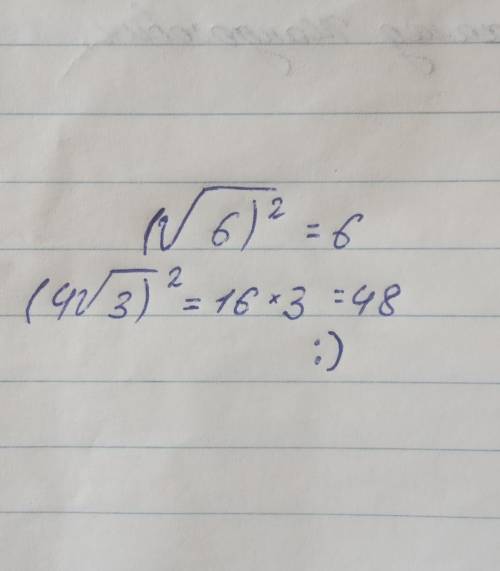 (√6)² = 6
(4√3)² = 16 × 3 = 48
:)